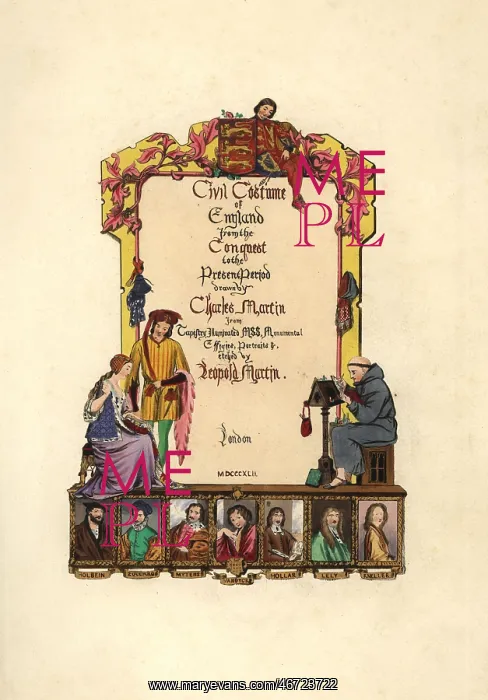 Civil Costume
of
England
from the
Conquest
to the
Present Period
drawn by
Charles Martin
from
Tapestry, Illuminated MSS, Monumental
Effigies, Portraits &.
etched by
Leopold Martin.
London
MDCCCXLII.
HOLBEIN ZUCCHARO MYTENS VANDYCK HOLLAR LELY KNELLER
ME
PL
ME
PL
www.maryevans.com/46723722